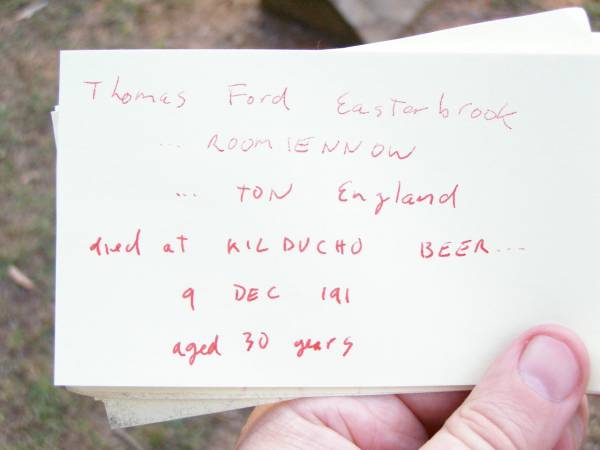 Thomas Ford Easterbrook
... ROOMIENNOW
... TON England
died at KILDUCHO BEER...
9 DEC 191
aged 30 years